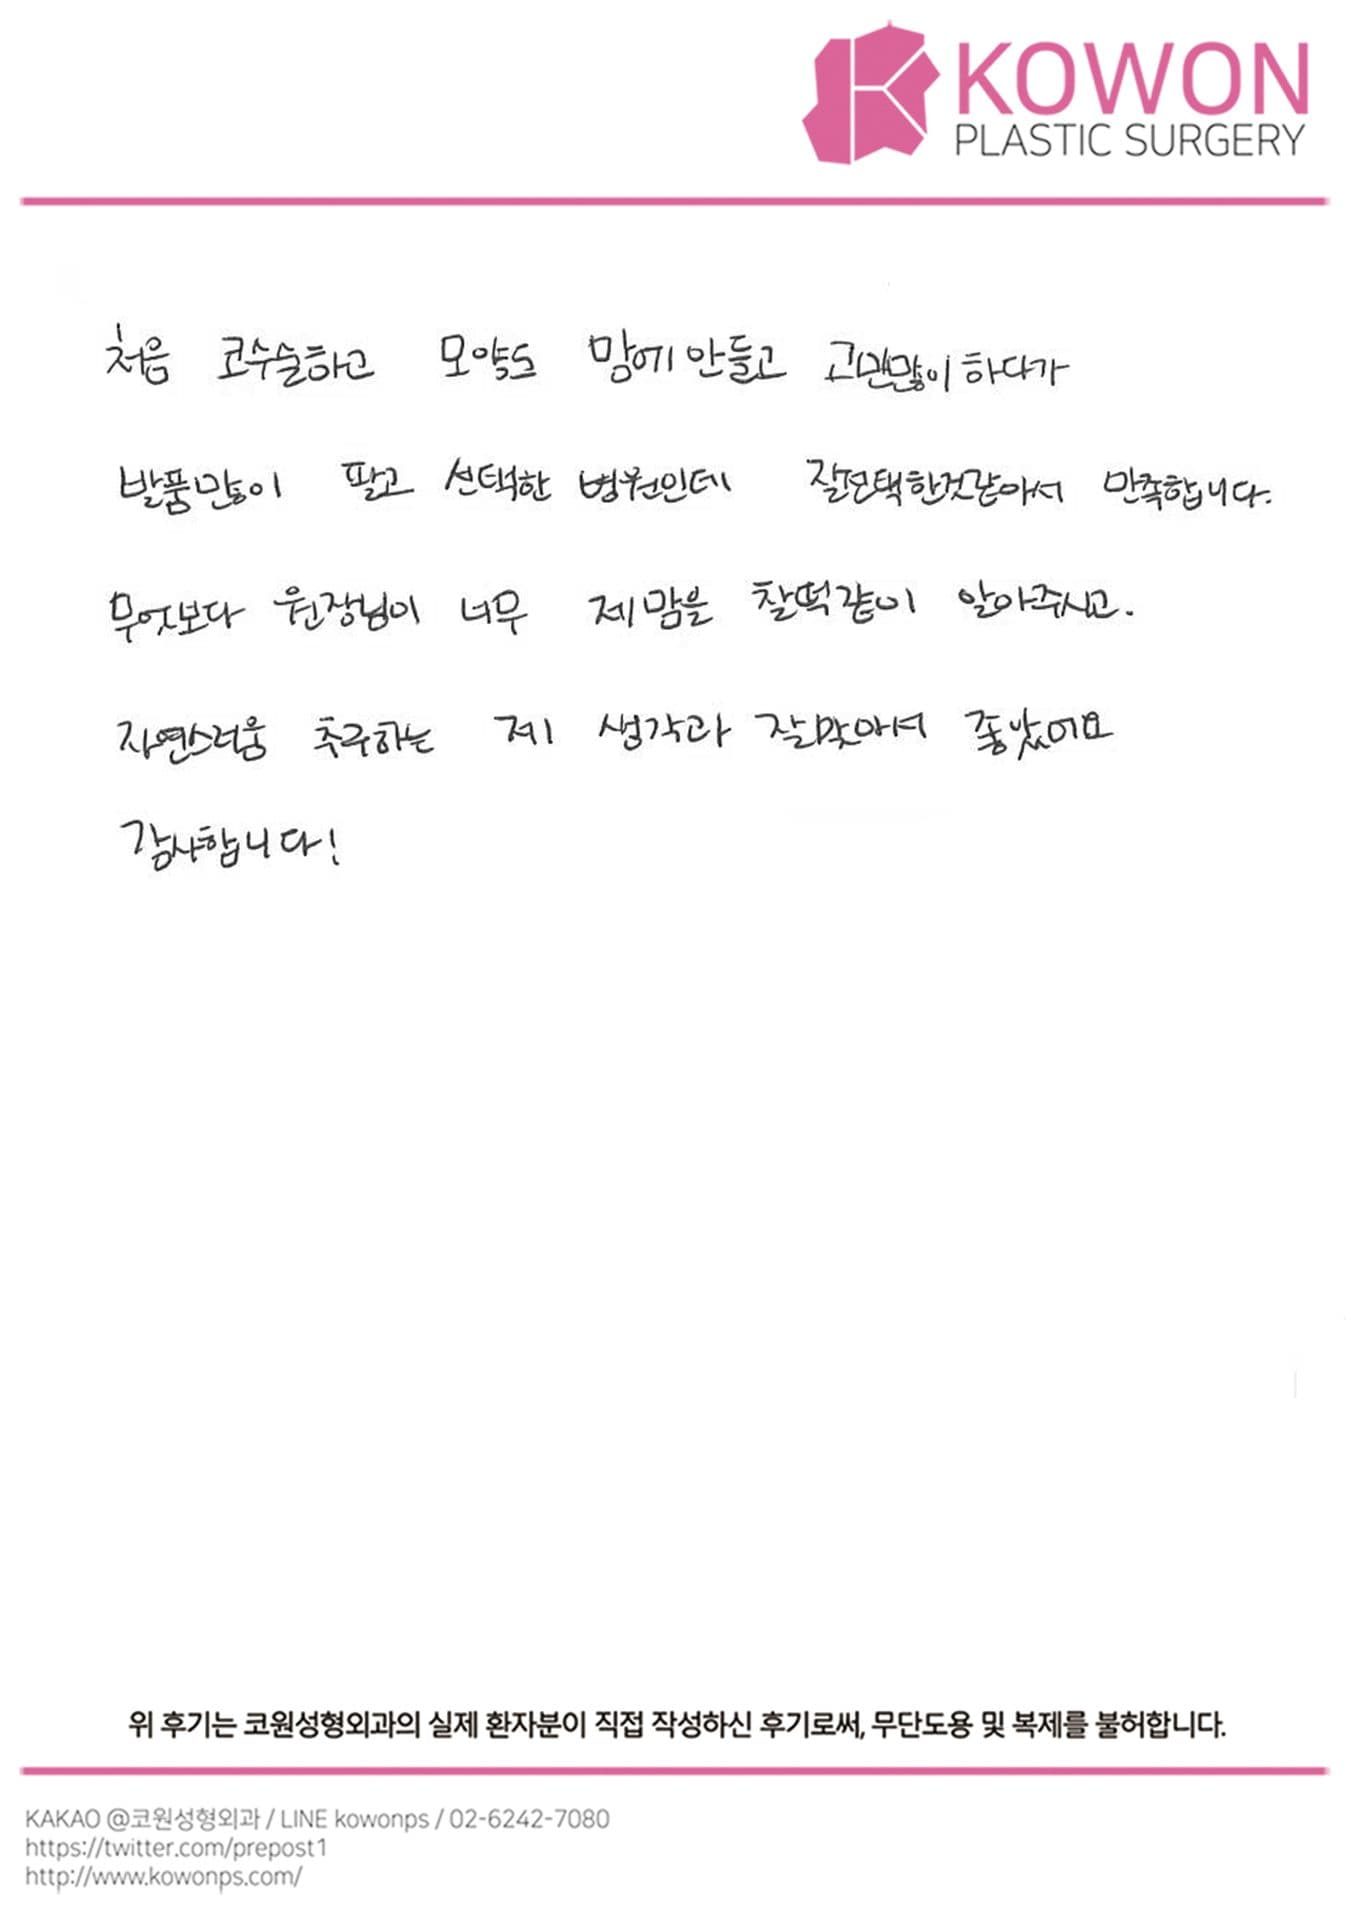 KOWON
PLASTIC SURGERY
처음 코수술하고 모양도 맘에 안들고 고민많이 하다가
발품많이 팔고 선택한 병원인데 잘선택한것같아서 만족합니다.
무엇보다 원장님이 너무 제 맘을 찰떡같이 알아주시고.
자연스러움 추구하는 제 생각과 잘맞아서 좋았어요
감사합니다!
위 후기는 코원성형외과의 실제 환자분이 직접 작성하신 후기로써, 무단도용 및 복제를 불허합니다.
KAKAO @코원성형외과 / LINE kowonps / 02-6242-7080
https://twitter.com/prepost1
http://www.kowonps.com/